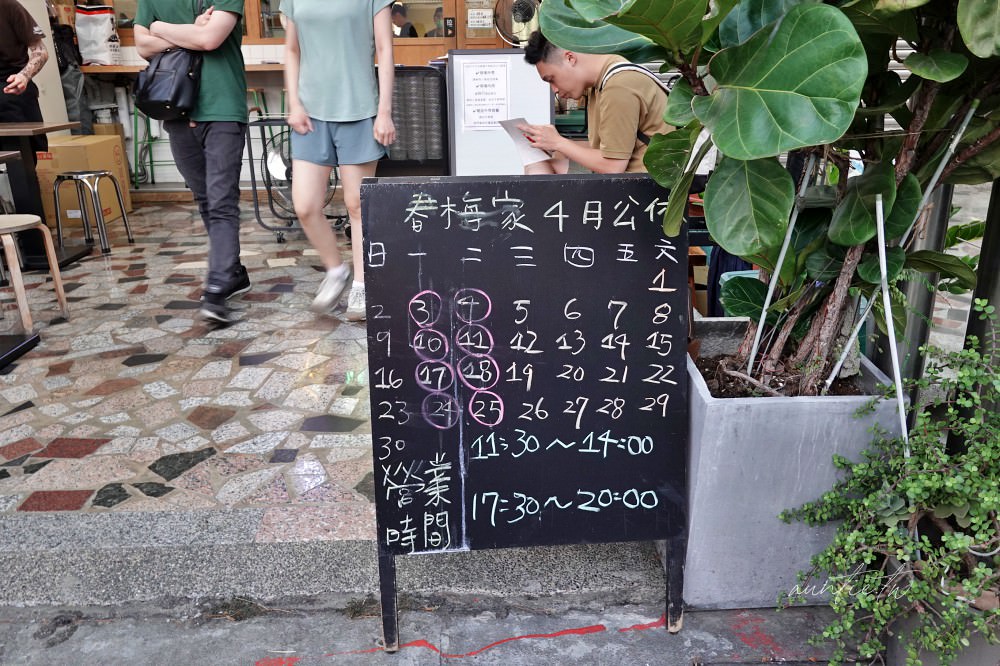 春梅家 4月公休
日 一 二 三 四 五 六
1
2 3 4 5 6 7 8
9 10 11 12 13 14 15
16 17 18 19 20 21 22
23 24 25 26 27 28 29
30
11:30～14:00
營業
時間
17:30～20:00